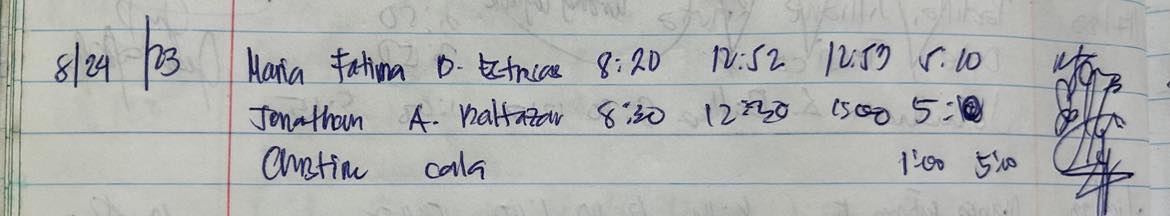 8/24/23 Maria Fatima D. 8:20 12:52 12:53 5:10
Jonathan A. Baltazar 8:30 12:30 1:00 5:10
Christine 1:00 5:10